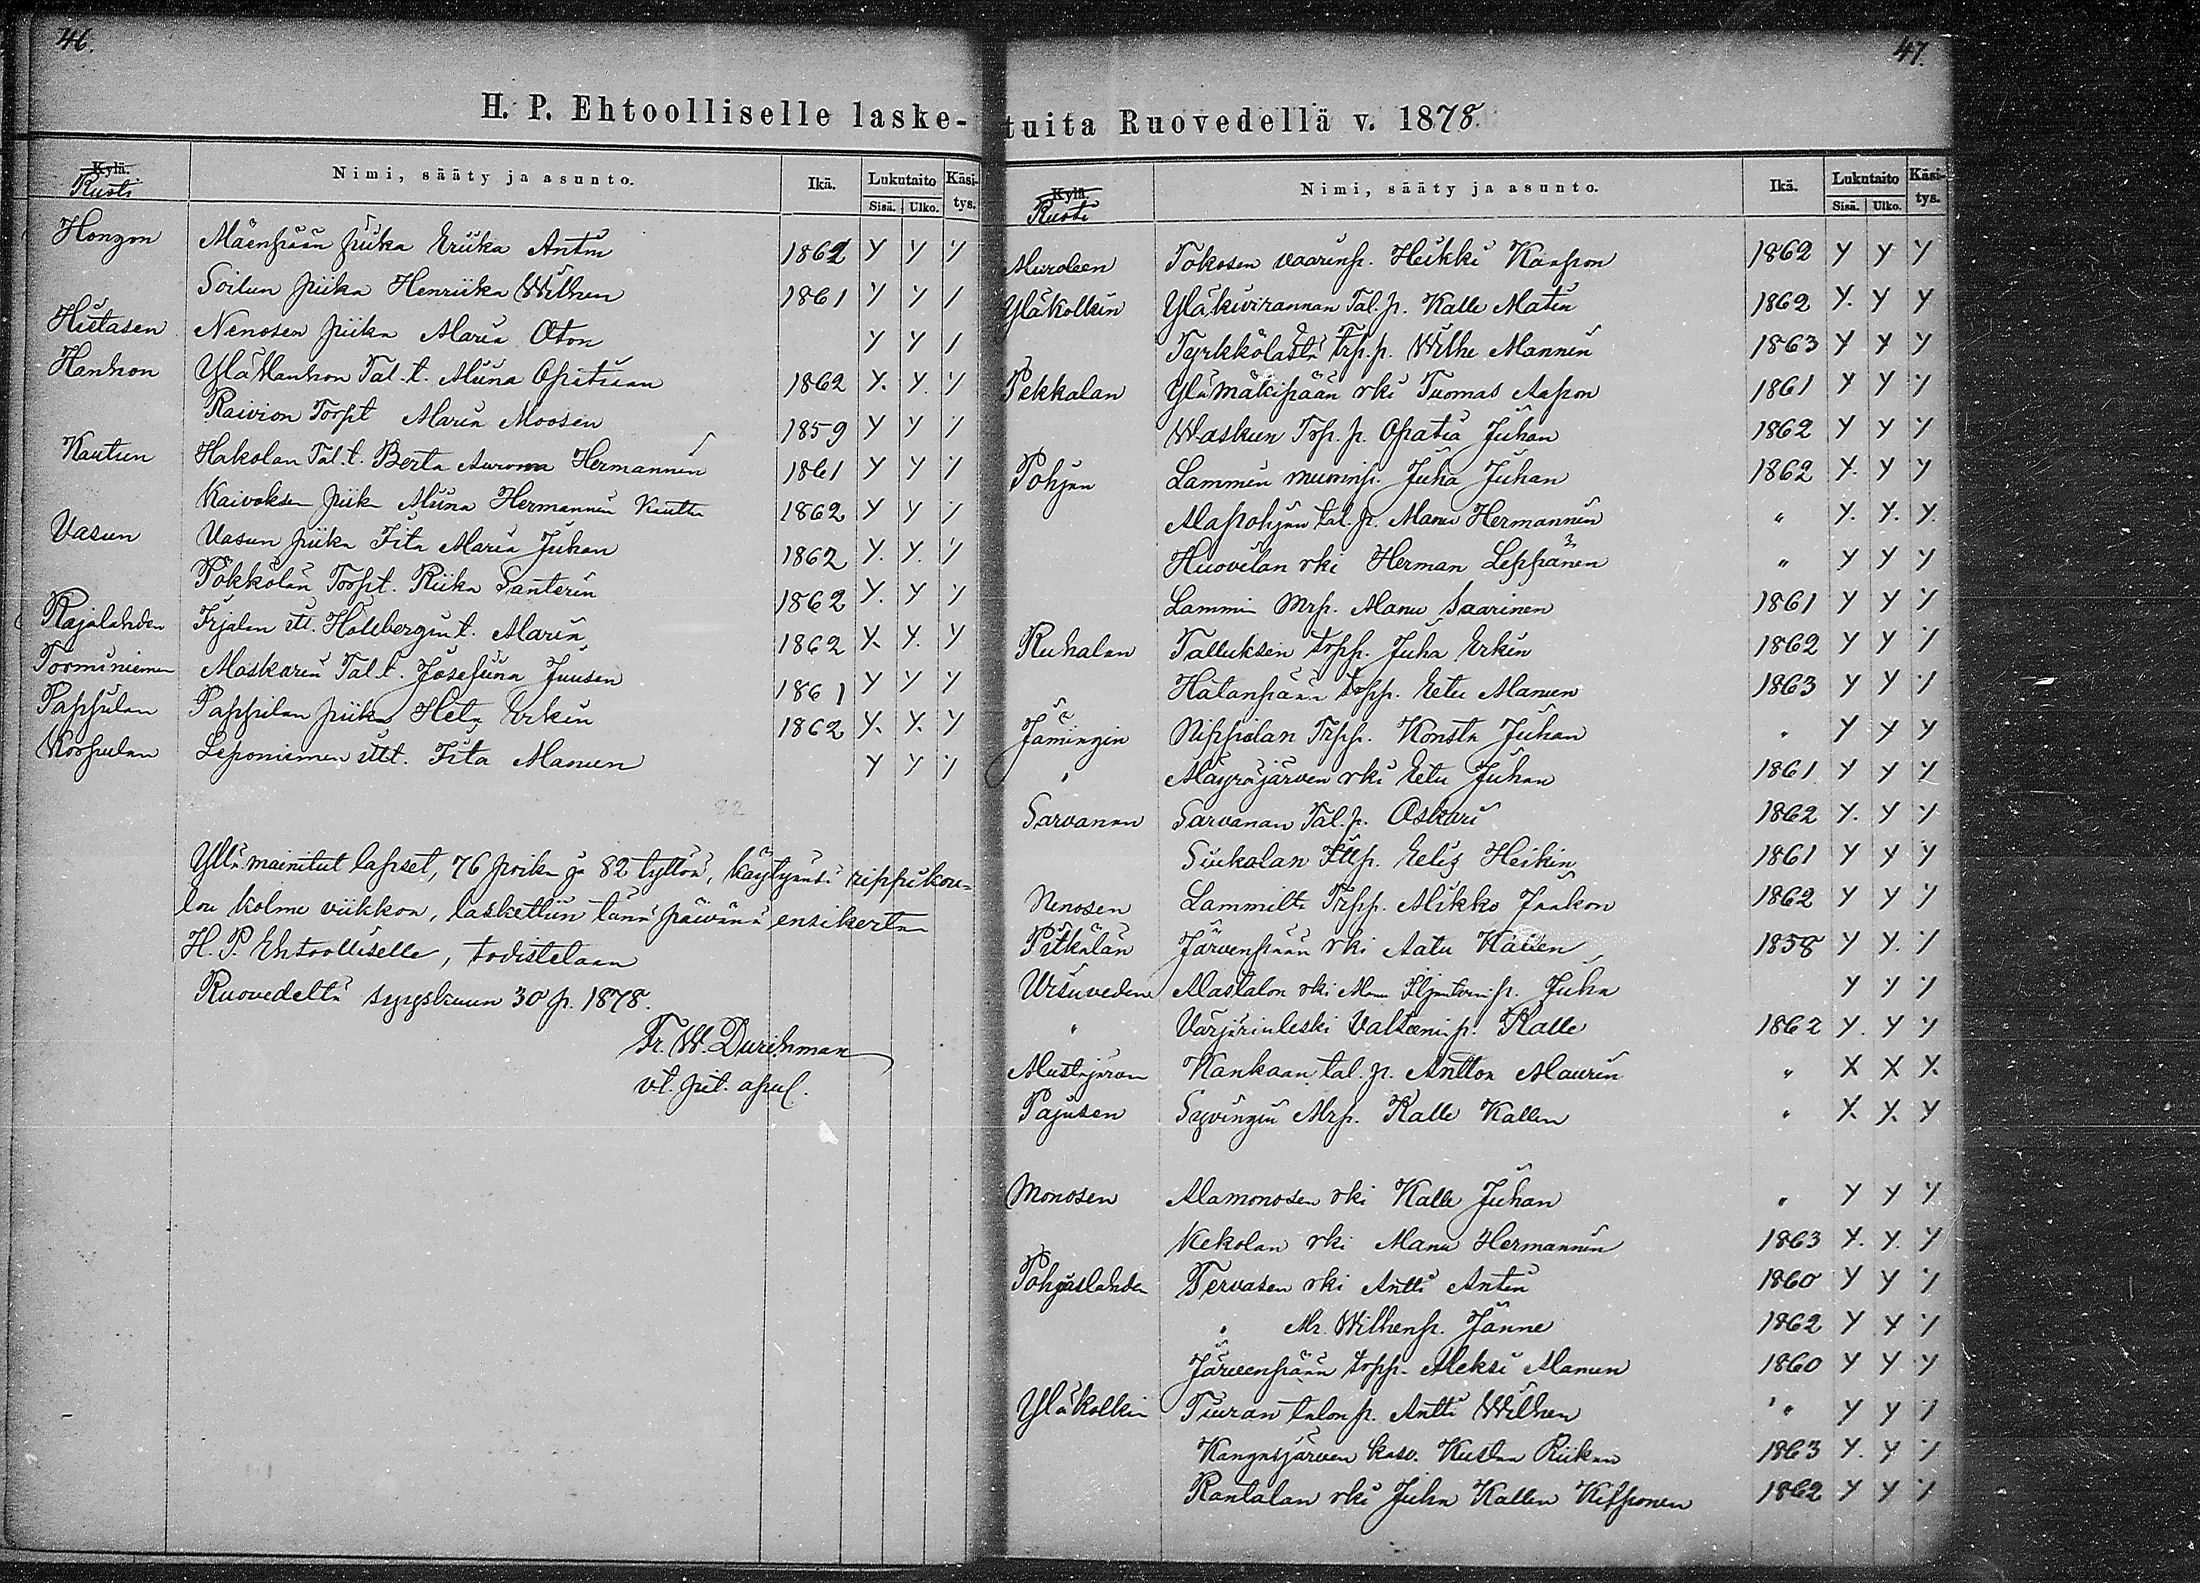 46.
H. P. Ehtoolliselle laske-
Kylä. Nimi, sääty ja asunto. Ikä. Lukutaito Käsi-
Rusti Sisä. Ulko. tys.
Honzon Mäenpään piika Eriika Antin 1862 y y y
Soilun piika Henriika Wilhen 1861 y y y
Hietasen Nenosen piika Maria Oton y y y
Hanhon Ylä Hanhon Tal. t. Miina Opatian 1862 y. y. y
Raivion Torpt Maria Moosen 1859 y y y
Kautun Hakolan Tal. t. Berta Aurora Hermannin 1861 y y y
Kaivoksen piika Miina Hermannin Kautta 1862 y y y
Vasun Vasun piika Fita Maria Juhan 1862 y. y. y
Pökkölän Torpt. Riika Santerin 1862 y. y y
Rajalahden Irjalan itt. Hollbergin t. Maria 1862 y. y. y
Törminiemen Maskarin Tal. t. Josefiina Juusen 1861 y y y
Pappilan Pappilan piika Heta Erkin 1862 y. y. y
Korpulan Leponiemen itt. Fita Manun y y y
82
Yllä mainitut lapset, 76 poika ja 82 tyttöä, käytyänsä rippikou-
lua kolme viikkoa, laskettiin tänä päivänä ensikerta
H. P. Ehtoolliselle, todistetaan
Ruovedeltä syyskuun 30 p. 1878.
Fr. W. Durchman
vt. pit. apul.
47.
tuita Ruovedellä v. 1878.
Kylä. Nimi, sääty ja asunto. Ikä. Lukutaito Käsi-
Rusti Sisä. Ulko. tys.
Muroleen Tokosen vaarinp. Heikki Kaapon 1862 y y y
Yläkolkin Yläkuivirannan Tal. p. Kalle Matin 1862 y. y y
Tyrkkölästä Trp. p. Wilhe Mannin 1863 y y y
Pekkalan Ylä mäkipään rki Tuomas Aapon 1861 y y y
Waskun Trp. p. Opatia Juhan 1862 y y y
Pohjan Lammin muorinp. Juha Juhan 1862 y. y y
Alapohjan tal. p. Manu Hermannin " y. y. y.
Huovilan rki Herman Leppänen " y y y
Lammin Mrp. Manu Saarinen 1861 y y y
Ruhalan Talluksen trpp. Juha Erkin 1862 y y y
Hatanpään trpp. Eetu Manuen 1863 y y y
Jämingin Nippilan Trpp. Konsta Juhan " y y y
" Mäyräjärven rki Eetu Juhan 1861 y y y
Sarvanan Sarvanan Tal. p. Oskari 1862 y. y y
Siukolan Ittp. Eelis Heikin 1861 y y y
Nenosen Lammilta Trpp. Mikko Jaakon 1862 y y y
Pitkälän Järvenpään rki Aatu Kallen 1858 y y. y
Visuveden Mastalon rki p. Juha y y y
" Värjärinleski p. Kalle 1862 y. y y
Mustajärven Kankaan tal. p. Anttoa Maurin " X X X.
Pajusen Syvingin Mrp. Kalle Kallen " y. y. y
Monosen Alamonosen rki Kalle Juhan " y y y
Kekolan rki Manu Hermannin 1863 y. y. y
Pohjaslahden Tervasen rki Antti Antin 1860 y y y
" Mr. Wilhenp. Janne 1862 y y y
Järvenpään trpp. Aleksi Manun 1860 y y y
Yläkolkin Tiuran talon p. Antti Wilhen " y y y
Kangasjärven kasv. Kustaa Riikan 1863 y. y y
Rantalan rki Juha Kallen Kipponen 1862 y y y